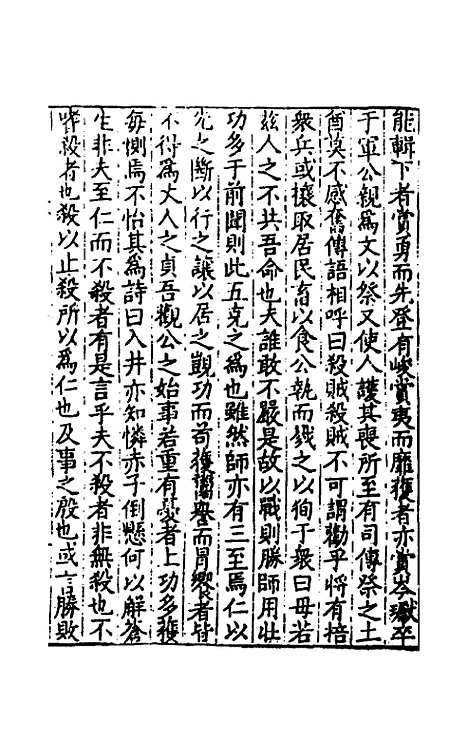 能輯下者賞勇而先登有峻賞夷而靡獲者亦賞岑瑊卒
于軍公親為文以祭又使人護其喪所至有司傳祭之土
酋莫不感奮傳語相呼曰殺賊殺賊不可謂勸乎將有掊
衆兵或攘取居民畜以食公執而戮之以徇于衆曰毋若
玆人之不共吾命也夫誰敢不嚴是故以戰則勝師用壯
功多于前聞則此五克之為也雖然師亦有三至焉仁以
先之斷以行之讓以居之觀功而苟獲嚮譽而冒者皆
不得為丈人之貞吾觀公之始事若重有憂者上功多獲
每惻焉不怡其為詩曰入井亦知憐赤子倒懸何以解蒼
生非夫至仁而不殺者有是言乎夫不殺者非無殺也不
嗜殺者也殺以止殺所以為仁也及事之殷也或言勝敗